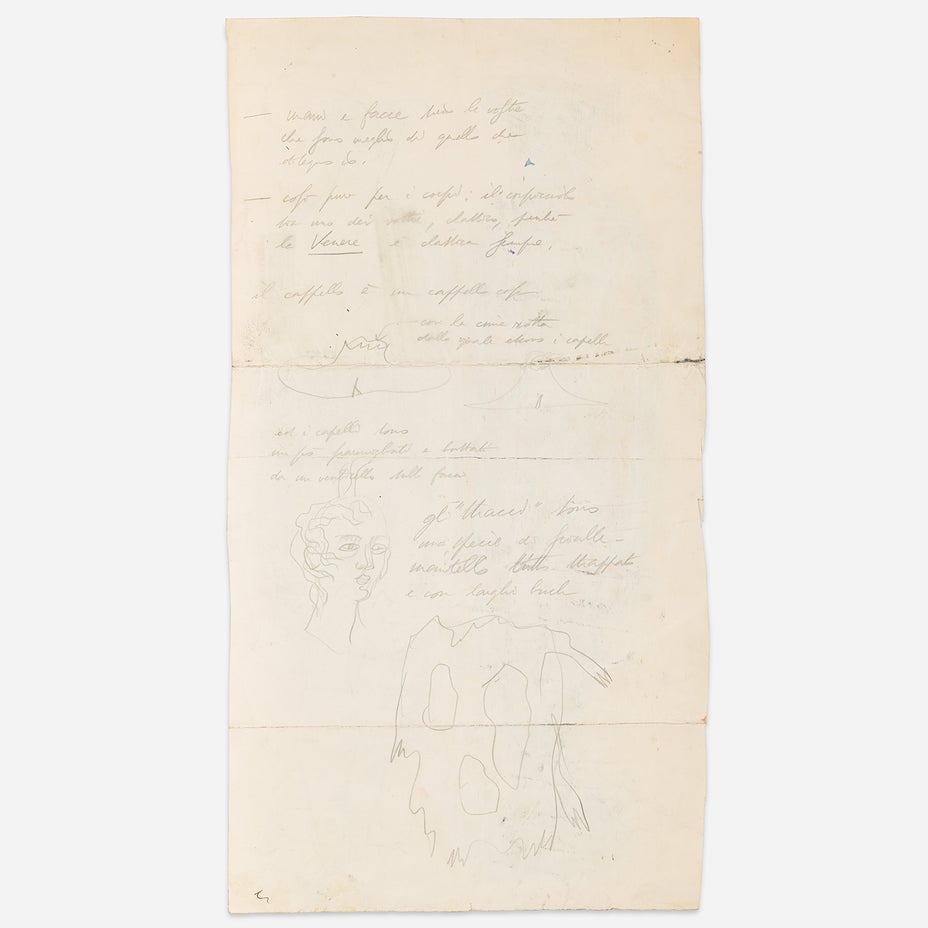 — mani e facce siano le vostre
che sono meglio di quelle che
disegno io.
— così pure per i corpi: il corpicciolo
sia uno dei vostri, classico, perchè
la Venere è classica sempre.
il cappello è un cappello così
con la cima rotta
dalla quale escono i capelli
ed i capelli sono
un pò scarmigliati e buttati
da un venticello sulla faccia
gli "stracci" sono
una specie di scialle-
mantello tutto strappato
e con larghi buchi